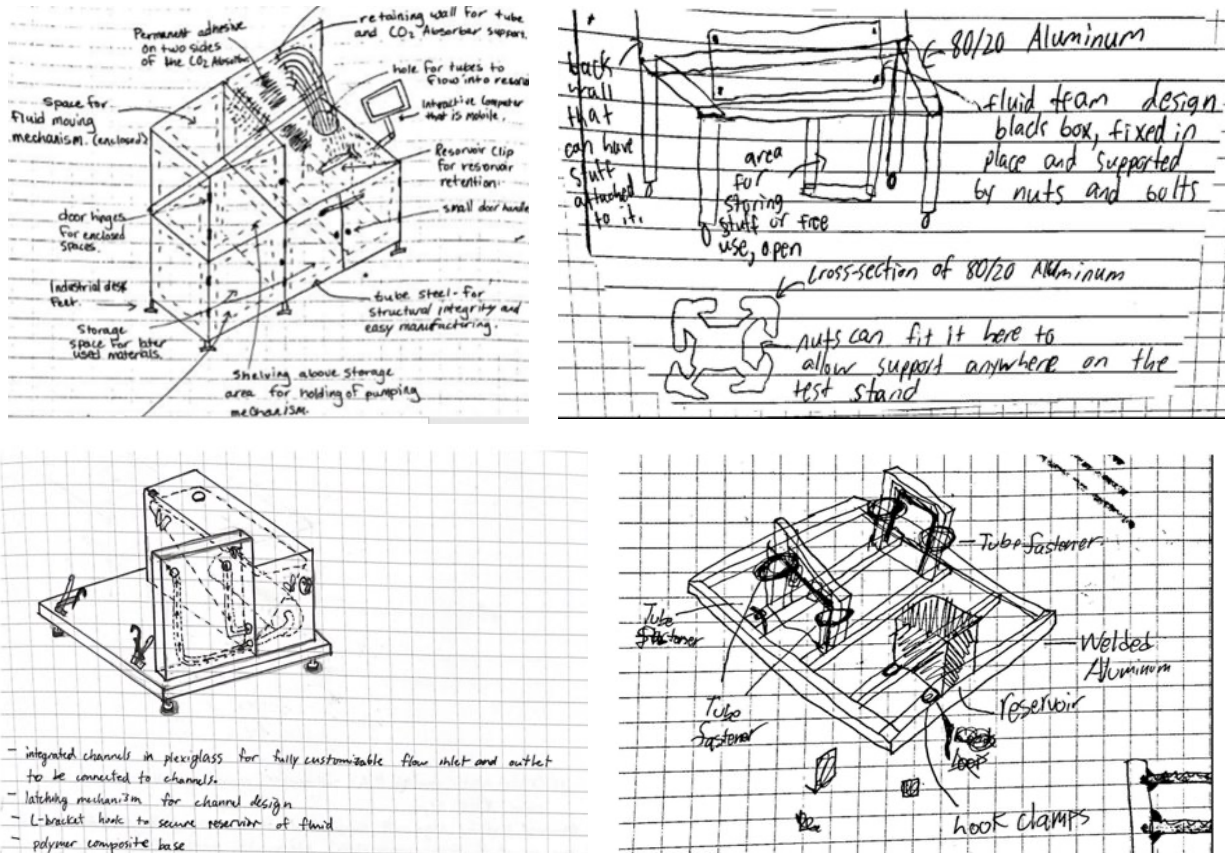 Permanent adhesive
on two sides
of the CO2 Absorber
retaining wall for tube
and CO2 Absorber support.
hole for tubes to
flow into reservoir
Interactive Computer
that is mobile.
Space for
fluid moving
mechanism. (enclosed)
Resorvoir Clip
for resorvoir
retention.
small door handle
door hinges
for enclosed
spaces.
Industrial desk
Feet.
tube steel - for
structural integrity and
easy manufacturing.
Storage
space for later
used materials.
Shelving above storage
area for holding of pumping
mechanism.
back
wall
that
can have
stuff
attached
to it.
80/20 Aluminum
fluid team design.
black box, fixed in
place and supported
by nuts and bolts
area
for
storing
stuff or free
use, open
cross-section of 80/20 Aluminum
nuts can fit it here to
allow support anywhere on the
test stand
- integrated channels in plexiglass for fully customizable flow inlet and outlet
to be connected to channels.
- latching mechanism for channel design
- L-bracket hook to secure reservior of fluid
- polymer composite base
Tube fastener
Tube
Tube
fastener
Welded
Aluminum
reservoir
hook clamps